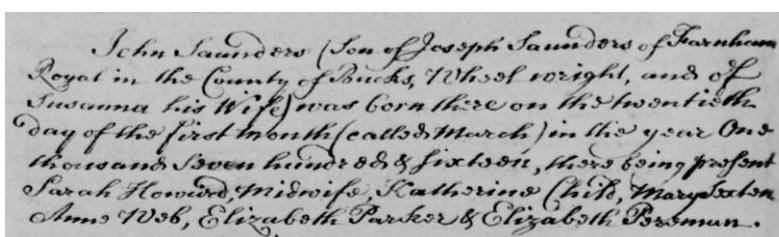 John Saunders (Son of Joseph Saunders of Farnham
Royal in the County of Bucks, Wheel wright, and of
Susanna his Wife) was born there on the twentieth
day of the first month (called March) in the year One
thousand Seven hundred & sixteen, there being present
Sarah Howard, Midwife, Katherine Child, Mary Sexten
Anne Web, Elizabeth Parker & Elizabeth Peroman.